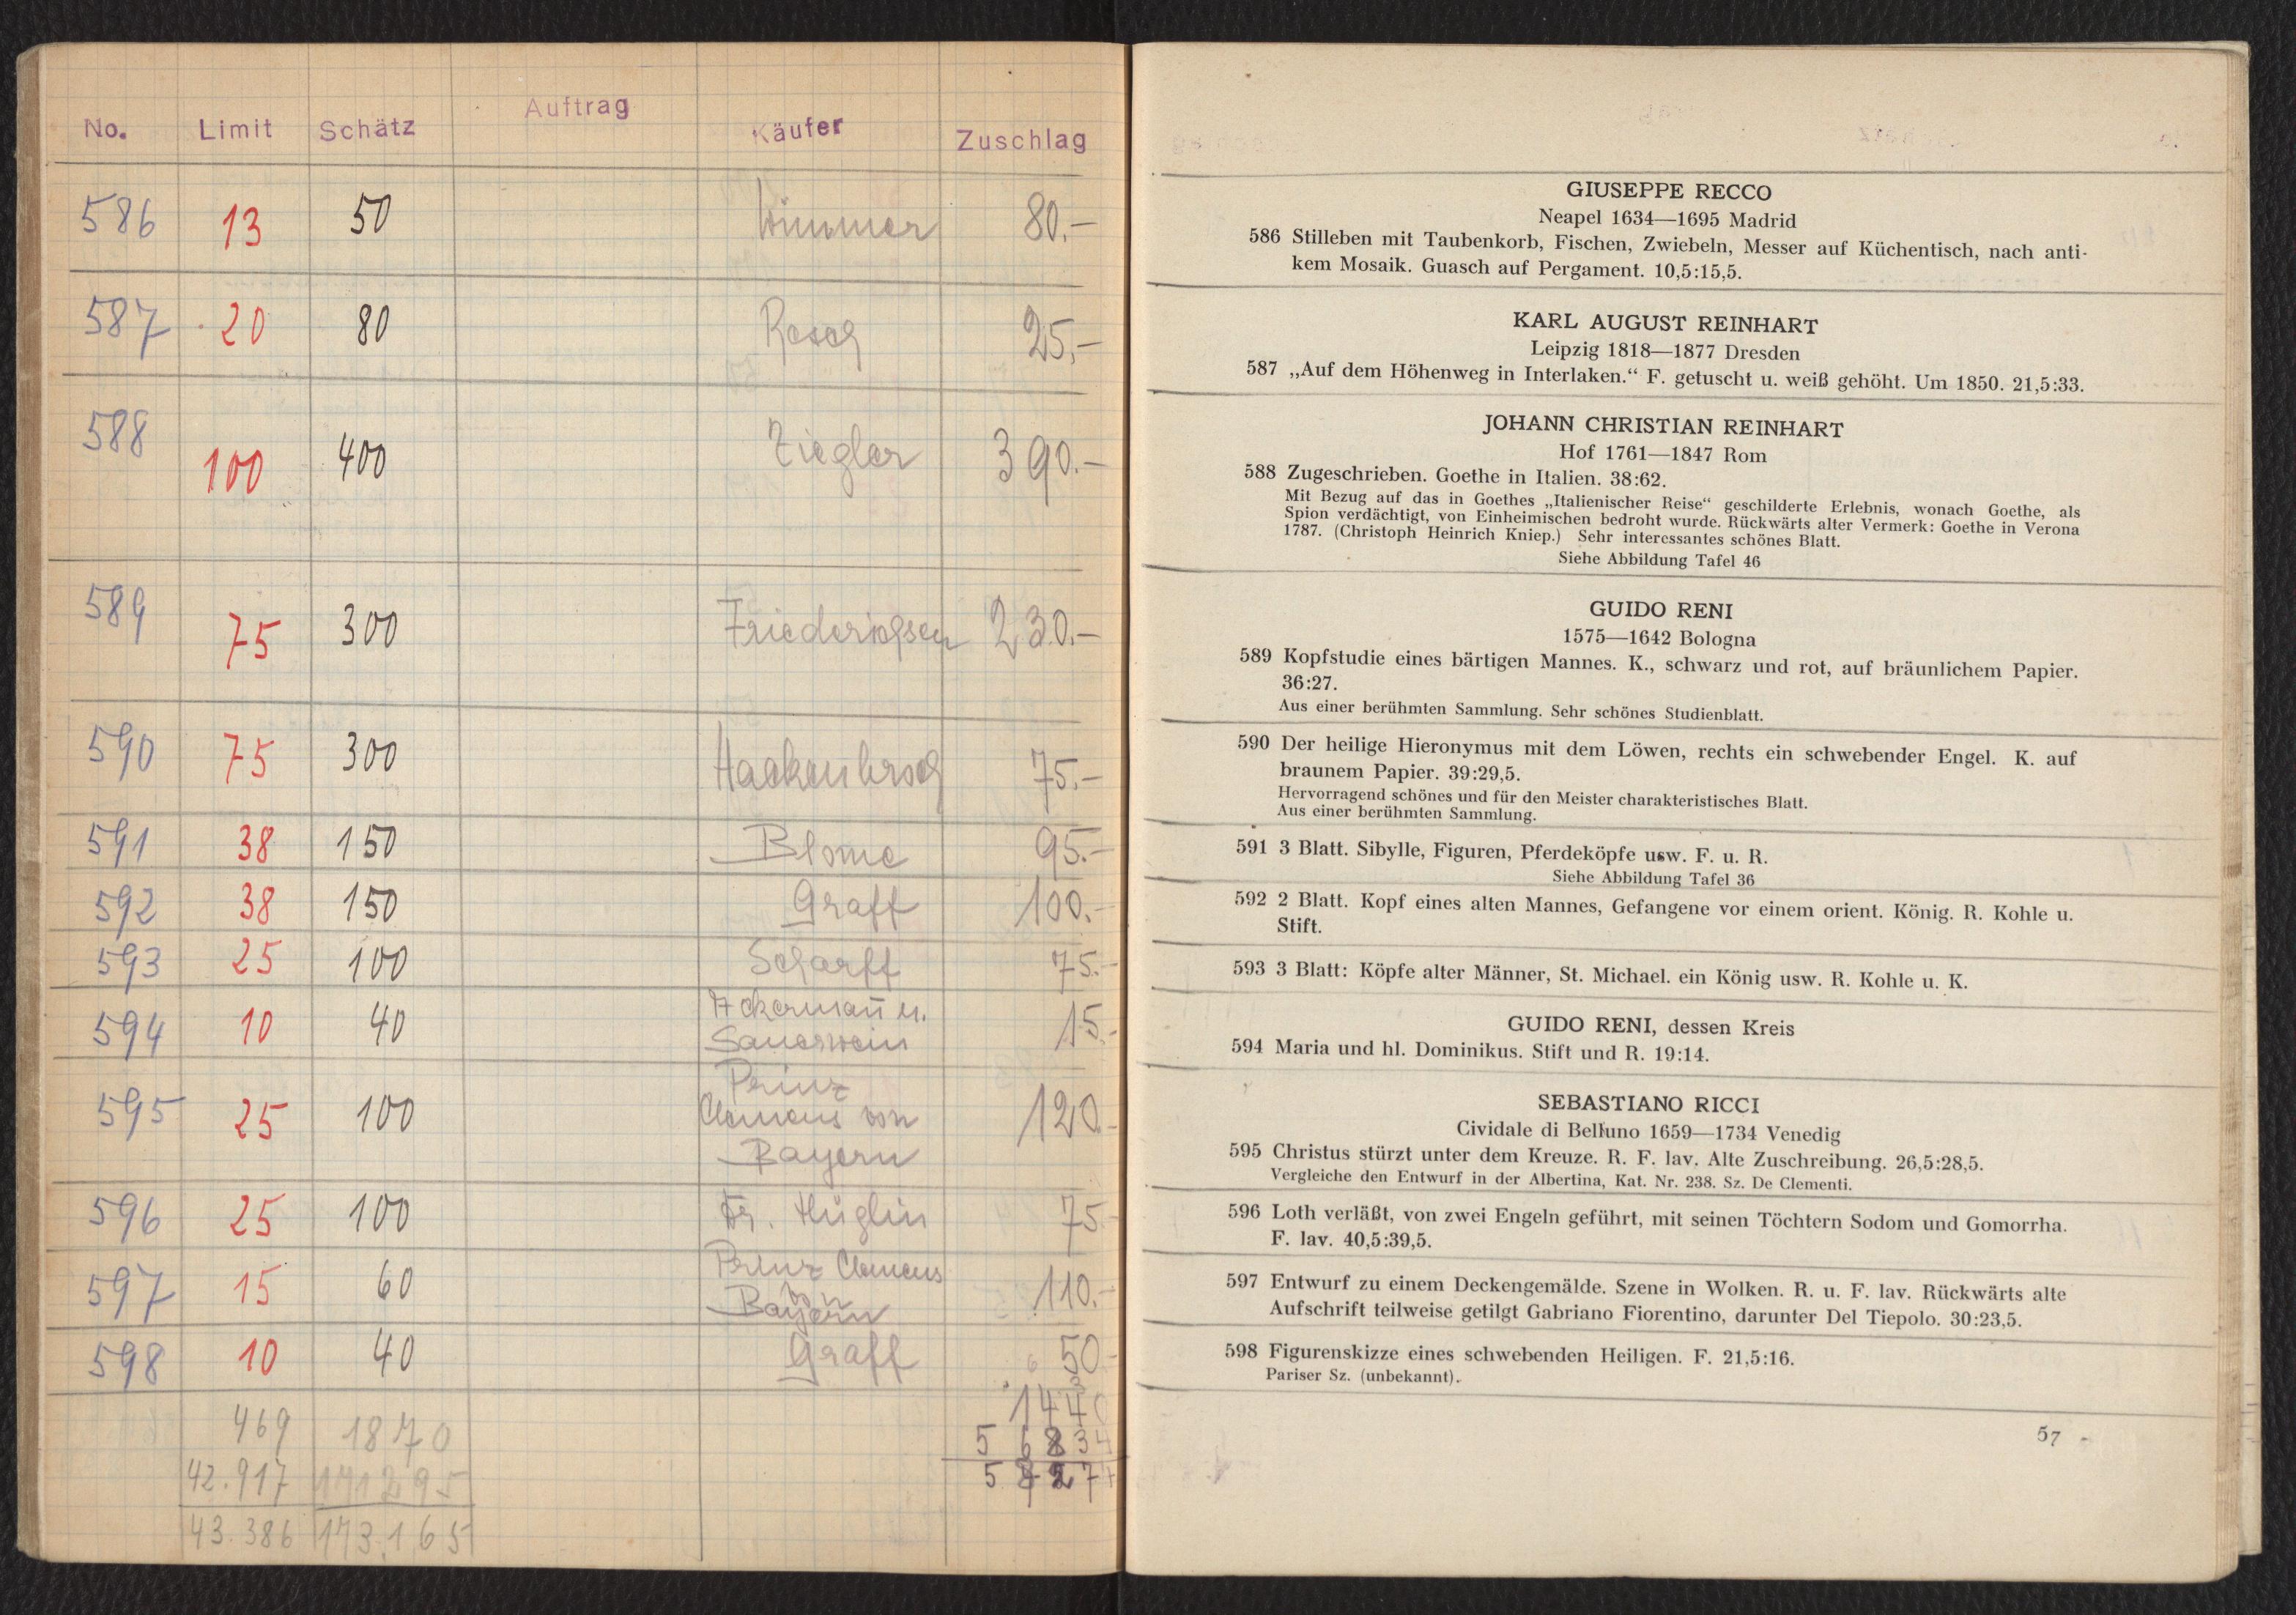 No. Limit Schätz Auftrag Käufer Zuschlag
586 13 50 Wimmer 80.-
587 20 80 Resch 25.-
588 100 400 Ziegler 390.-
589 75 300 Friederichsen 230.-
590 75 300 Hackenbroch 75.-
591 38 150 Blome 95.-
592 38 150 Graff 100.-
593 25 100 Scharff 75.-
594 10 40 Ackermañ u. Sauerwein 15.-
595 25 100 Prinz Clemens von Bayern 120.-
596 25 100 Hüglin 75
597 15 60 Prinz Clemens von Bayern 110.-
598 10 40 Graff 50.-
469 1870 1440
42.917 171295
43.386 173.165
GIUSEPPE RECCO
Neapel 1634—1695 Madrid
586 Stilleben mit Taubenkorb, Fischen, Zwiebeln, Messer auf Küchentisch, nach anti-
kem Mosaik. Guasch auf Pergament. 10,5:15,5.
KARL AUGUST REINHART
Leipzig 1818—1877 Dresden
587 „Auf dem Höhenweg in Interlaken.“ F. getuscht u. weiß gehöht. Um 1850. 21,5:33.
JOHANN CHRISTIAN REINHART
Hof 1761—1847 Rom
588 Zugeschrieben. Goethe in Italien. 38:62.
Mit Bezug auf das in Goethes „Italienischer Reise“ geschilderte Erlebnis, wonach Goethe, als
Spion verdächtigt, von Einheimischen bedroht wurde. Rückwärts alter Vermerk: Goethe in Verona
1787. (Christoph Heinrich Kniep.) Sehr interessantes schönes Blatt.
Siehe Abbildung Tafel 46
GUIDO RENI
1575—1642 Bologna
589 Kopfstudie eines bärtigen Mannes. K., schwarz und rot, auf bräunlichem Papier.
36:27.
Aus einer berühmten Sammlung. Sehr schönes Studienblatt.
590 Der heilige Hieronymus mit dem Löwen, rechts ein schwebender Engel. K. auf
braunem Papier. 39:29,5.
Hervorragend schönes und für den Meister charakteristisches Blatt.
Aus einer berühmten Sammlung.
591 3 Blatt. Sibylle, Figuren, Pferdeköpfe usw. F. u. R.
Siehe Abbildung Tafel 36
592 2 Blatt. Kopf eines alten Mannes, Gefangene vor einem orient. König. R. Kohle u.
Stift.
593 3 Blatt: Köpfe alter Männer, St. Michael. ein König usw. R. Kohle u. K.
GUIDO RENI, dessen Kreis
594 Maria und hl. Dominikus. Stift und R. 19:14.
SEBASTIANO RICCI
Cividale di Belluno 1659—1734 Venedig
595 Christus stürzt unter dem Kreuze. R. F. lav. Alte Zuschreibung. 26,5:28,5.
Vergleiche den Entwurf in der Albertina, Kat. Nr. 238. Sz. De Clementi.
596 Loth verläßt, von zwei Engeln geführt, mit seinen Töchtern Sodom und Gomorrha.
F. lav. 40,5:39,5.
597 Entwurf zu einem Deckengemälde. Szene in Wolken. R. u. F. lav. Rückwärts alte
Aufschrift teilweise getilgt Gabriano Fiorentino, darunter Del Tiepolo. 30:23,5.
598 Figurenskizze eines schwebenden Heiligen. F. 21,5:16.
Pariser Sz. (unbekannt).
57